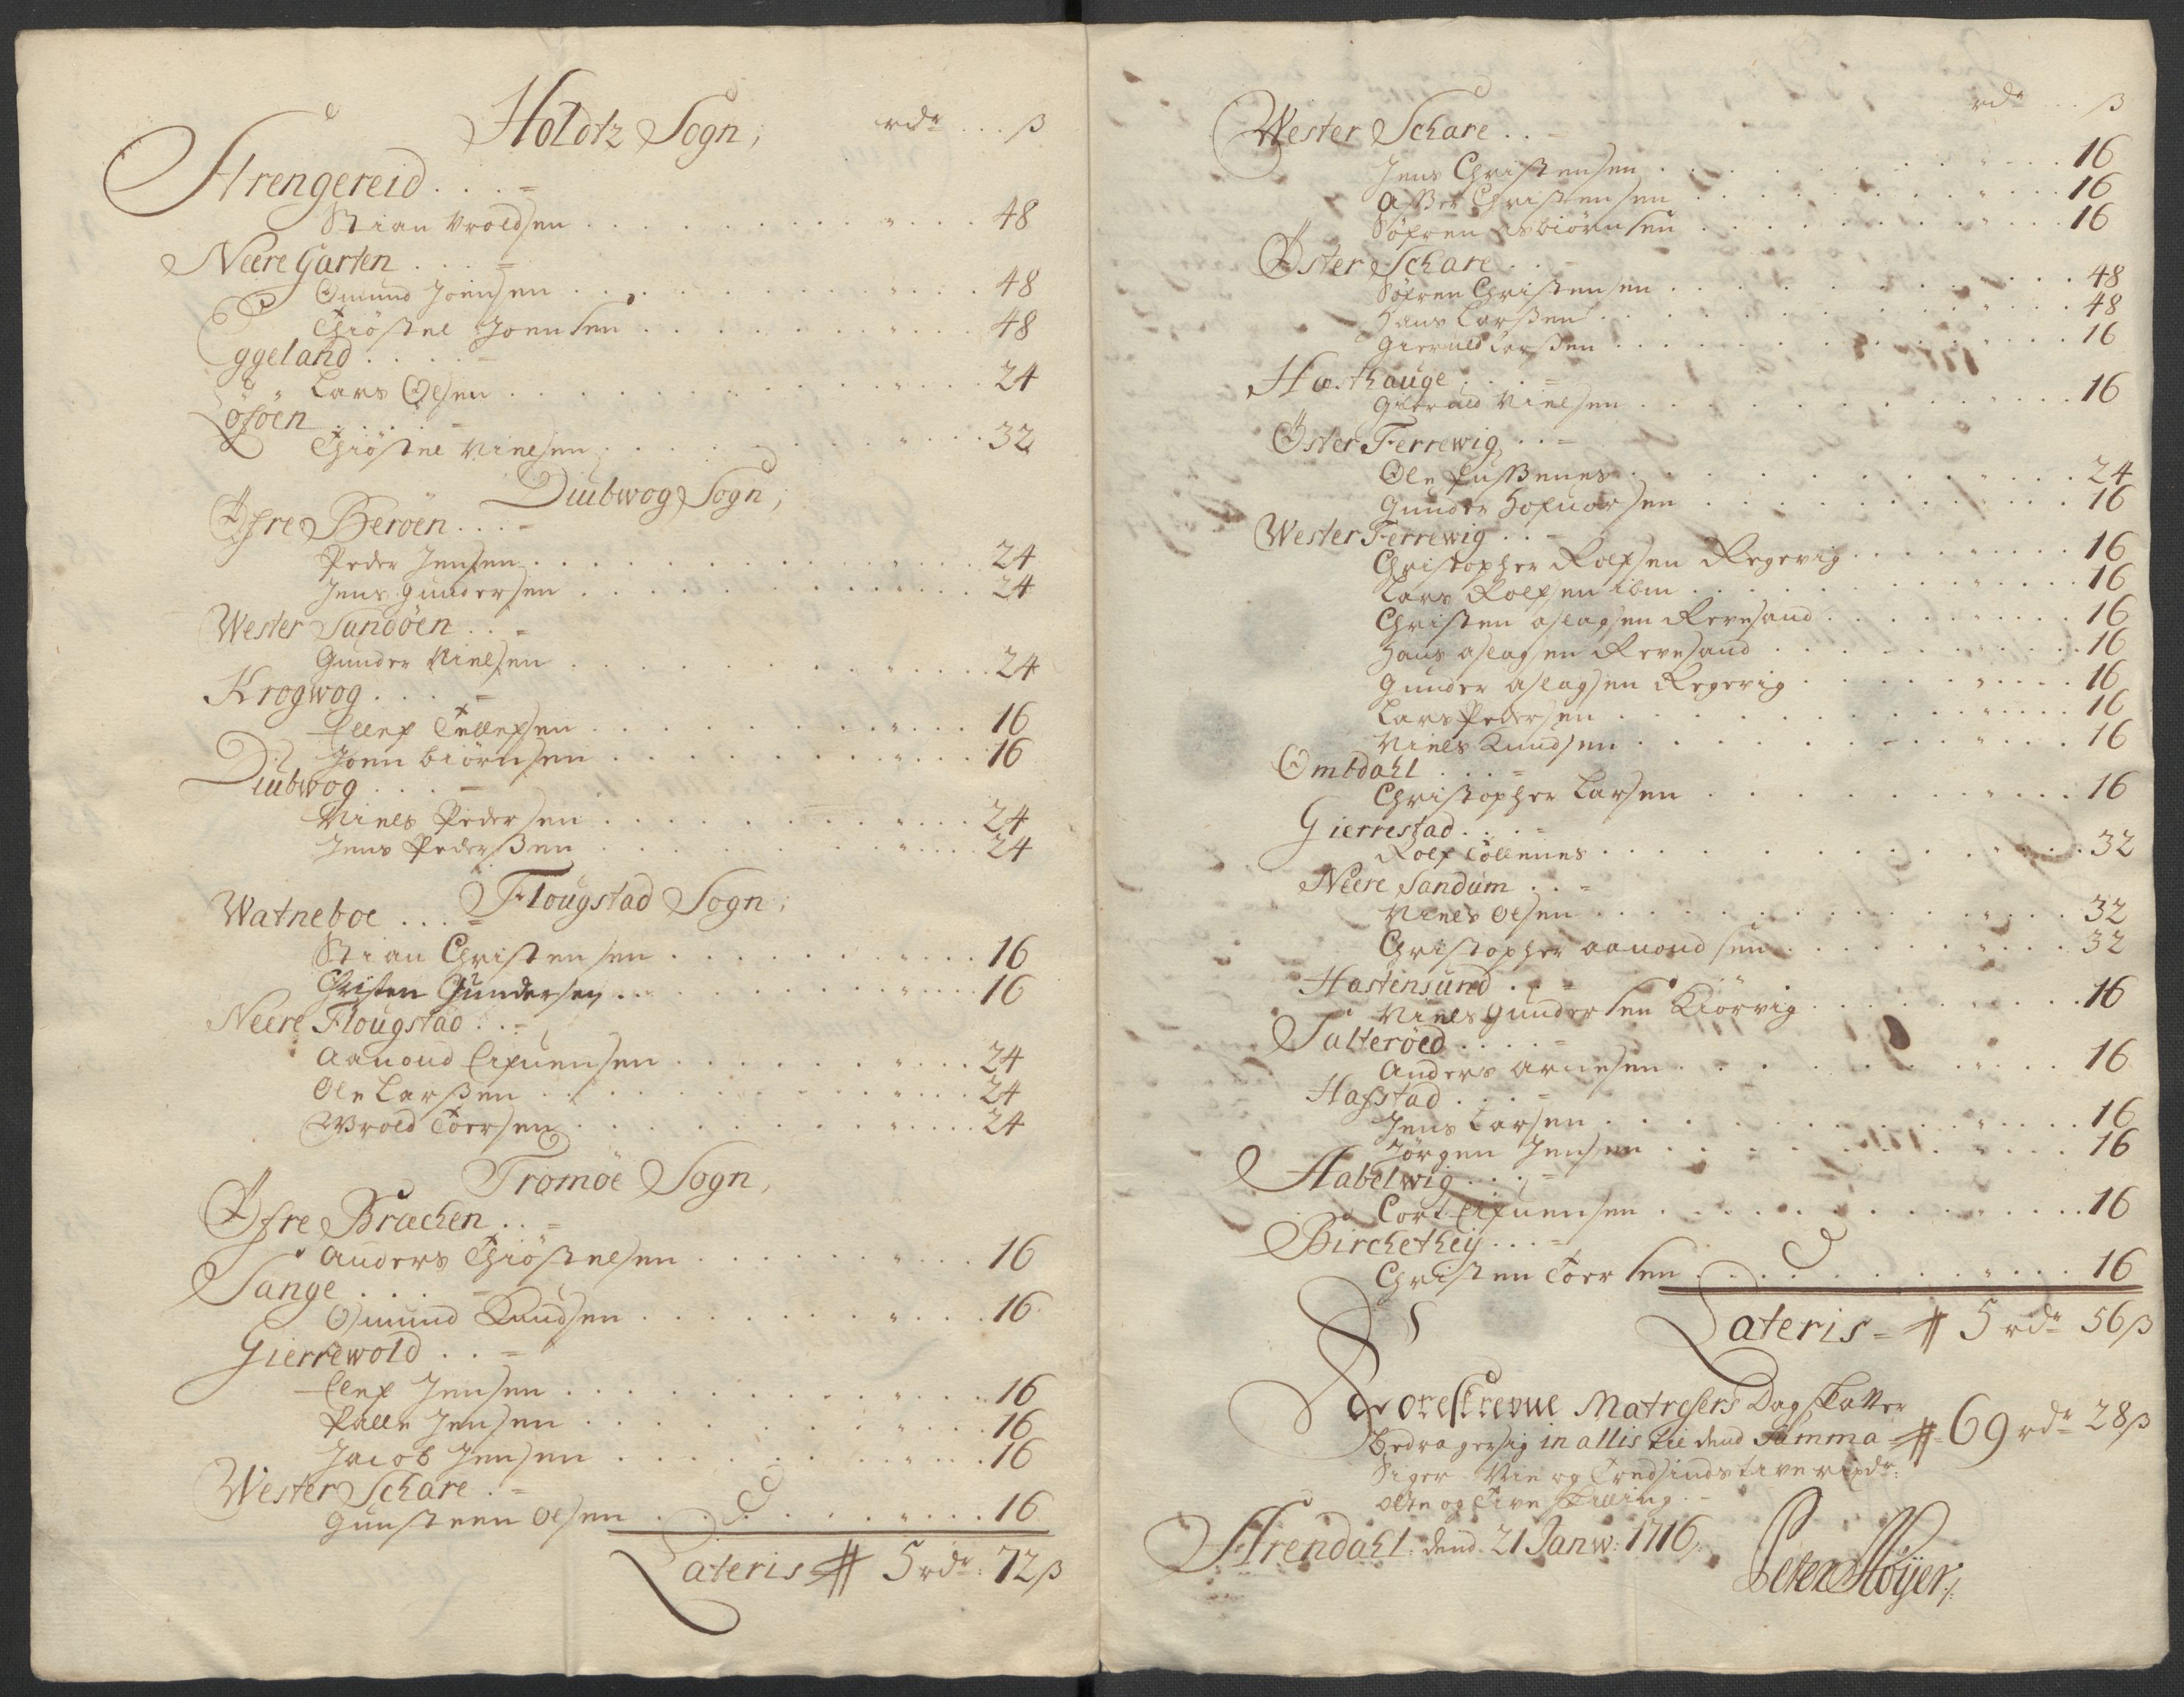 Holdtz Sogn,
rdr ... ß
Strengereid . . . =
Stian Vroldsen . . . 48
Neere Garten . . . =
Omund Joensen . . . 48
Thiøstel Joensen . . . 48
Eggeland . . . =
Lars Olsen . . . 24
Löföen . . . =
Thiøstel Nielsen . . . 32
Diubwog Sogn,
Øfre Beröen . . . =
Peder Jensen . . . 24
Jens gundersen . . . 24
Wester Sandöen . . =
Gunder Nielsen . . . 24
Krogwog . . . =
Ellef Tellefsen . . . 16
Joen biörnsen . . . 16
Diubwog . . . =
Niels Pedersen . . . 24
Jens Pederßen . . . 24
Flougstad Sogn,
Watneboe . . . =
Stian Christensen . . . 16
Christen Gundersen . . . 16
Neere Flougstad . . =
Aanond Eifuensen . . . 24
Ole Larßen . . . 24
Wrold Toersen . . . 24
Tromöe Sogn,
Øfre Bræchen . . =
Anders Thiøstelsen . . . 16
Sange . . . =
Omund Knudsen . . . 16
Gierrewold . . =
Ellef Jensen . . . 16
Palle Jensen . . . 16
Jacob Jensen . . . 16
Wester Schare . =
Gunsteen Olsen . . . 16
Lateris # 5 rdr: 72 ß
rdr ... ß
Wester Schare . . =
Jens Christensen . . . 16
Aßer Christensen . . . 16
Söfren Asbiörnsen . . . 16
Øster Schare . . =
Söfren Christensen . . . 48
Hans Larßen . . . 48
Gieruld Larßen . . . 16
Hæsthauge . . . =
Gieruld Nielsen . . . 16
Øster Ferrewig . . =
Ole Pußenes . . . 24
Gunder Hofuorsen . . . 16
Wester Ferrewig . . =
Christopher Rolfsen Regevig . . . 16
Lars Rolfsen ibm . . . 16
Christen aslagsen Revesand . . . 16
Hans aslagsen Revesand . . . 16
Gunder aslagsen Regevig . . . 16
Lars Pedersen . . . 16
Niels Knudsen . . . 16
Ombdahl . . . =
Christopher Larsen . . . 16
Gierrestad . . . =
Rolf Tollenes . . . 32
Neere Sandum . . =
Niels Olsen . . . 32
Christopher aanondsen . . . 32
Hastensund . . =
Niels Gundersen Kiörvig . . . 16
Salteröed . . . =
Anders Arnesen . . . 16
Hafstad . . . =
Jens Larsen . . . 16
Jörgen Jensen . . . 16
Habelwig . . . =
Cort Eifuensen . . . 16
Birchethey . . . =
Christen Toersen . . . 16
Lateris = # 5 rdr 56 ß
Forskrevne Matrosers Dagskatter
bedrager sig in allis til dend Summa # 69 rdr 28 ß
Siger Nie og Tredsindstive rixdr:
otte og Tive Skilling . =
Arendahl dend 21 Janw: 1716,
Peter Høyer,